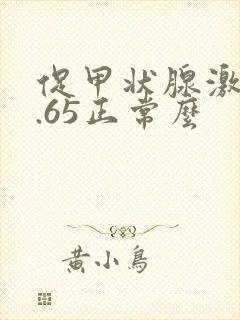 促甲状腺激
.65正常麼
黄小鳥